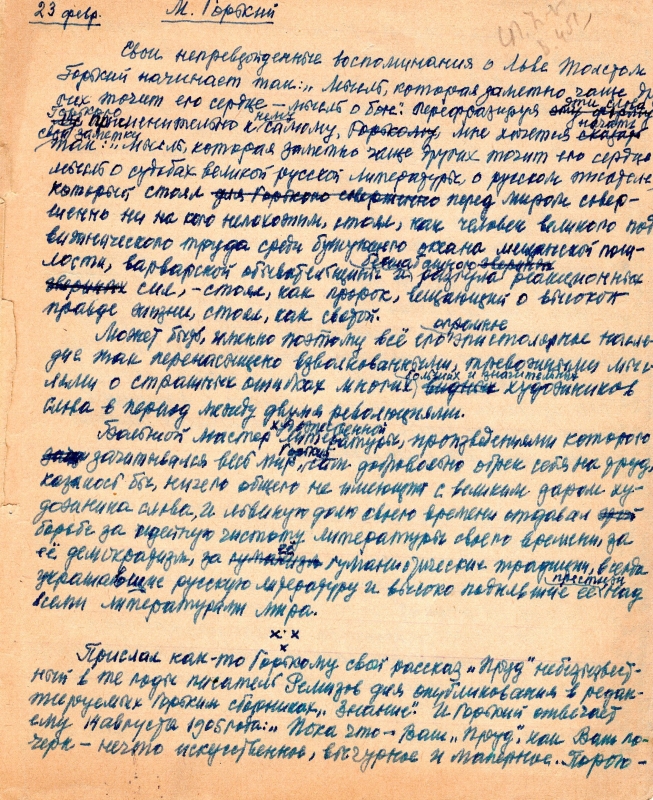 23 февр. М. Горький
Свои непревзойденные воспоминания о Льве Толстом
Горький начинает так: „Мысль, которая заметно чаще дру-
гих точит его сердце – мысль о боге." Перефразируя эту фразу эти слова
Горького применительно к нему самому, Горькому, мне хочется сказать начать
свою заметку так: „Мысль, которая заметно чаще других точит его сердце
мысль о судьбах великой русской литературы, о русском писателе,
который стоял для Горького совершенно перед миром совер-
шенно ни на кого непохожим, стоял, как человек великого под-
вижнического труда среди бушующего океана мещанской пош-
лости, варварской обывательщины и разгула реакционных
звериных сил, – стоял, как пророк, вещающий о высокой
правде жизни, стоял, как святой.
Может быть, именно поэтому всё его огромное эпистолярное насле-
дие так перенасыщено взволнованными, тревожными мыс-
лями о страшных ошибках многих больших и значительных видных художников
слова в период между двумя революциями.
Большой мастер художественной литературы, произведениями которого
зачитывался весь мир, Горький сам добровольно обрек себя на труд,
казалось бы, ничего общего не имеющий с великим даром ху-
дожника слова, и львиную долю своего времени отдавал этой
борьбе за идейную чистоту литературы своего времени, за
её демократизм, за гуманизм её гуманистические традиции, всегда
украшавшие русскую литературу и высоко поднявшие её престиж над
всеми литературами мира.
х х х
Прислал как-то Горькому свой рассказ „Пруд" небезызвест-
ный в те годы писатель Ремизов для опубликования в редак-
тируемых Горьким сборниках „Знание". И Горький отвечает
ему 14 августа 1905 года: „Пока что – Ваш „Пруд", как Ваш по-
черк – нечто искусственное, вычурное и манерное. Порою –